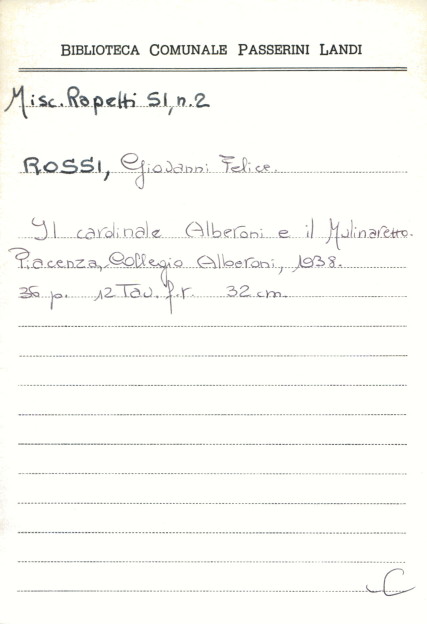 BIBLIOTECA COMUNALE PASSERINI LANDI
Misc. Rapetti 51, n. 2
ROSSI, Giovanni Felice.
Il cardinale Alberoni e il Mulinaretto.
Piacenza, Collegio Alberoni, 1938.
36 p. 12 Tav. f.t. 32 cm.
C